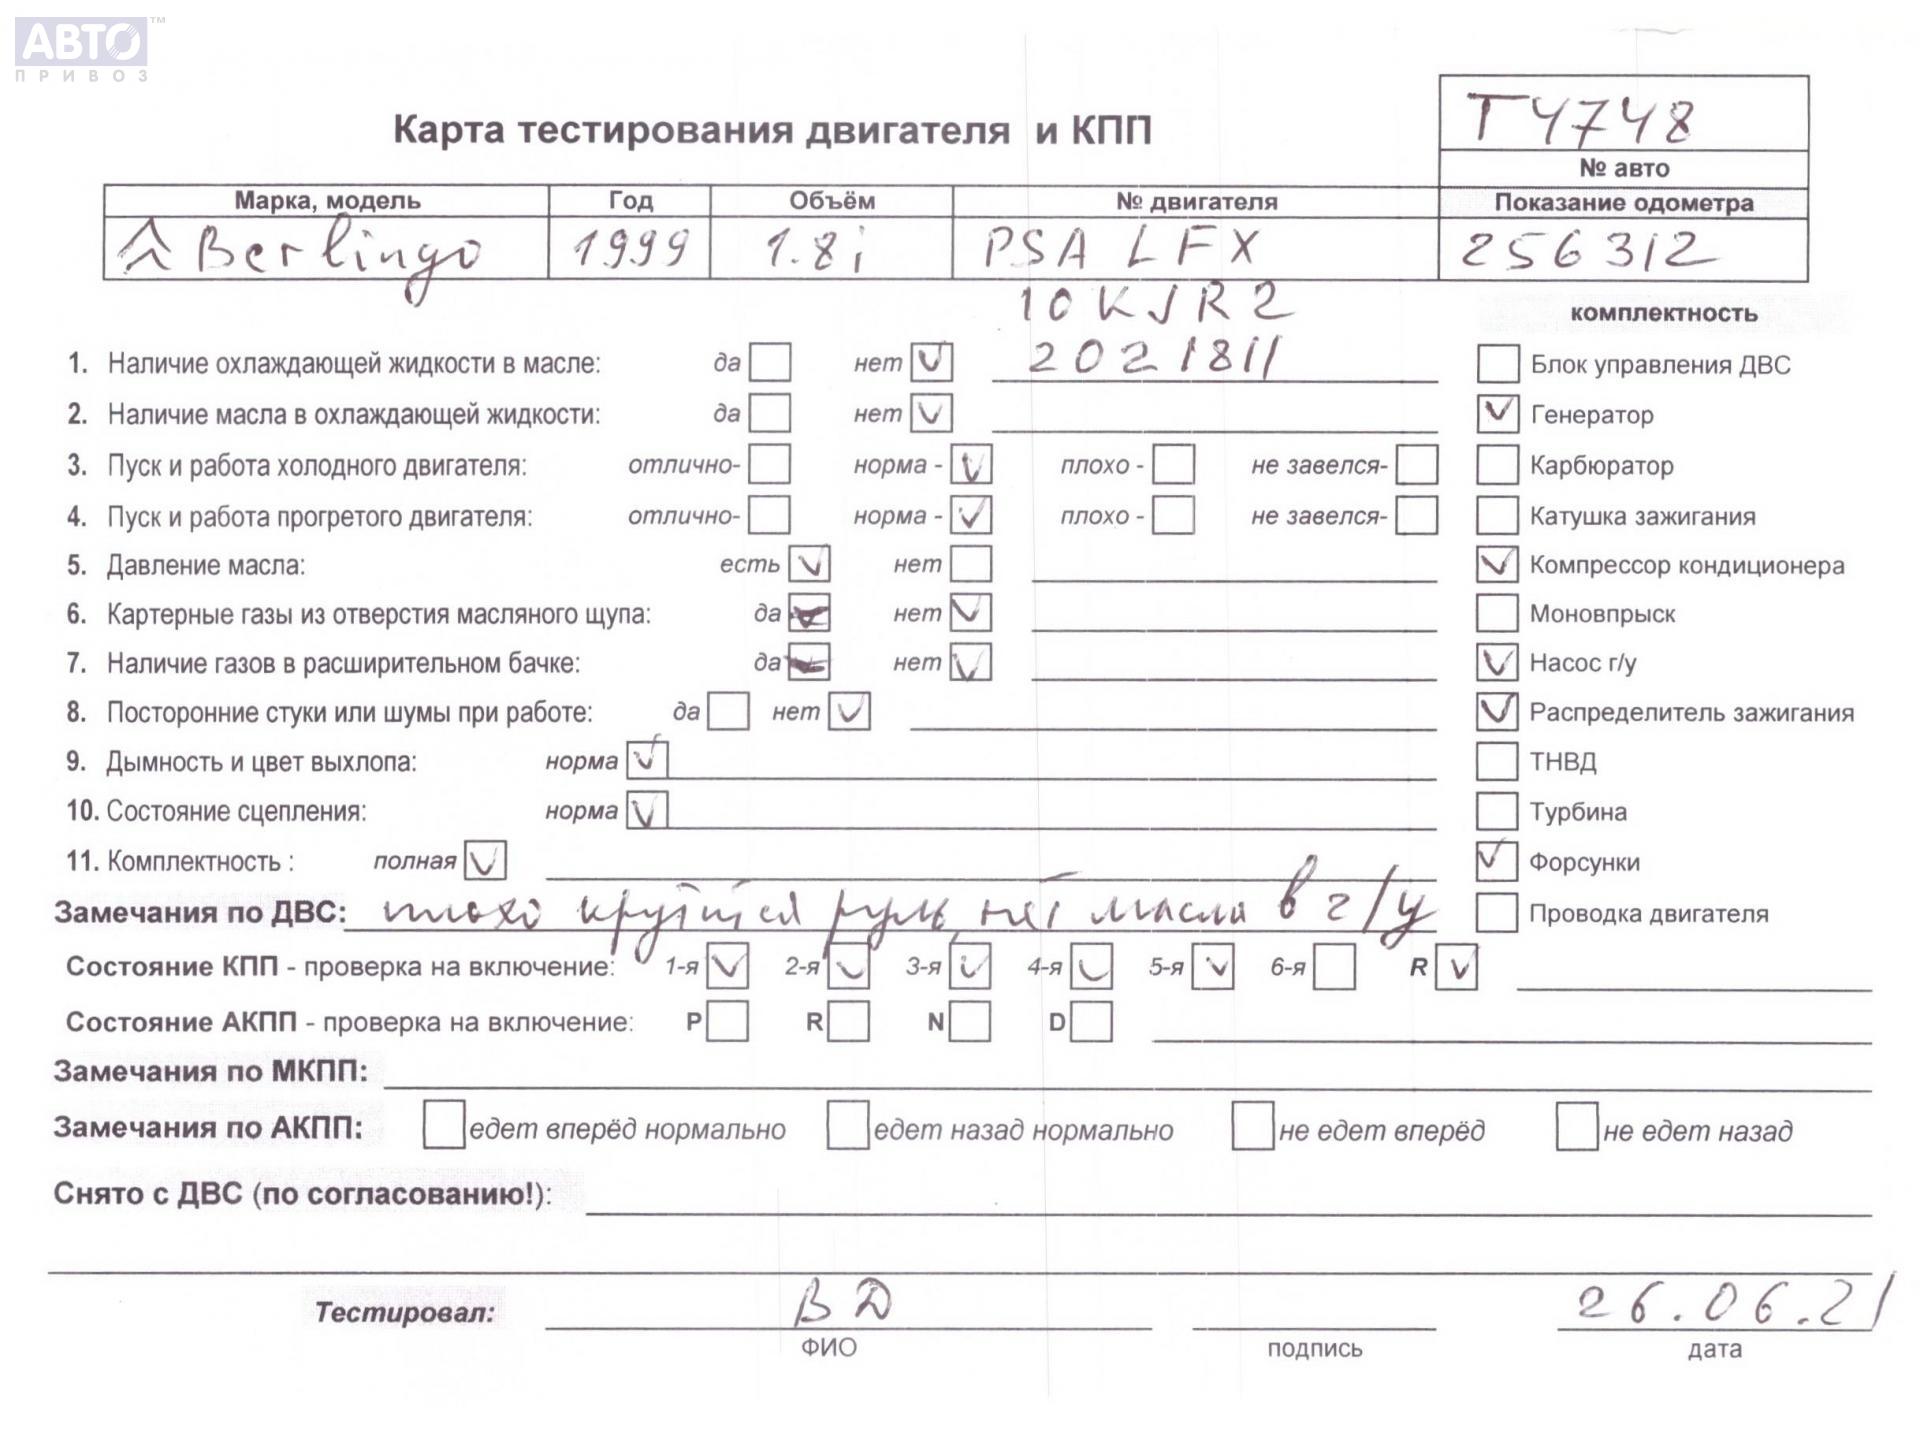 АВТО™
ПРИВОЗ
Карта тестирования двигателя и КПП
Т4748
№ авто
Марка, модель Год Объём № двигателя Показание одометра
Berlingo 1999 1.8i PSA LFX 256312
10KJR2
комплектность
1. Наличие охлаждающей жидкости в масле: да нет 2021811 Блок управления ДВС
2. Наличие масла в охлаждающей жидкости: да нет Генератор
3. Пуск и работа холодного двигателя: отлично- норма - плохо - не завелся- Карбюратор
4. Пуск и работа прогретого двигателя: отлично- норма - плохо - не завелся- Катушка зажигания
5. Давление масла: есть нет Компрессор кондиционера
6. Картерные газы из отверстия масляного щупа: да нет Моновпрыск
7. Наличие газов в расширительном бачке: да нет Насос г/у
8. Посторонние стуки или шумы при работе: да нет Распределитель зажигания
9. Дымность и цвет выхлопа: норма ТНВД
10. Состояние сцепления: норма Турбина
11. Комплектность : полная Форсунки
Замечания по ДВС: плохо крутится руль, нет масла в г/у Проводка двигателя
Состояние КПП - проверка на включение: 1-я 2-я 3-я 4-я 5-я 6-я R
Состояние АКПП - проверка на включение: P R N D
Замечания по МКПП:
Замечания по АКПП: едет вперёд нормально едет назад нормально не едет вперёд не едет назад
Снято с ДВС (по согласованию!):
Тестировал: ВД 26.06.21
ФИО подпись дата